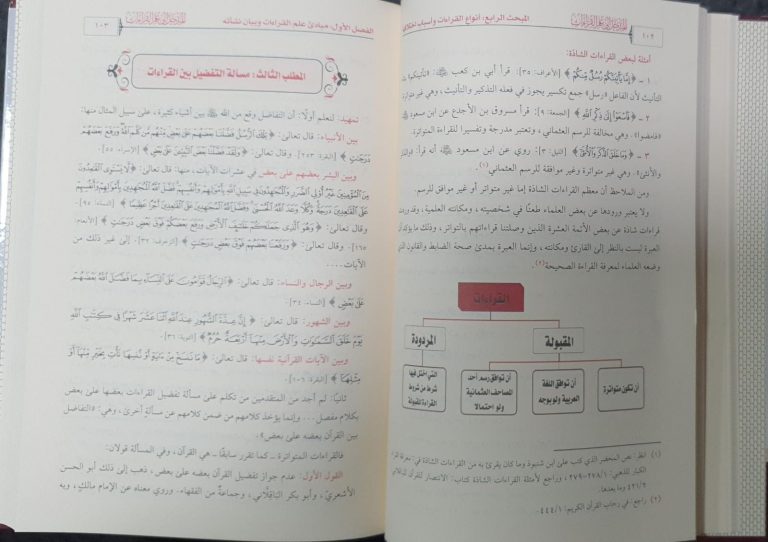 ١٠٢
المبحث الرابع: أنواع القراءات وأسباب اختلاف
أمثلة لبعض القراءات الشاذة:
١ ـ ﴿إِمَّا يَأْتِيَنَّكُمْ رُسُلٌ مِنْكُمْ﴾ [الأعراف: ٣٥]: قرأ أبي بن كعب ﷺ: «تأتينكم»
التأنيث لأن الفاعل «رسل» جمع تكسير يجوز في فعله التذكير والتأنيث، وهي غير متواترة
٢ ـ ﴿فَاسْعَوْا إِلَى ذِكْرِ اللَّهِ﴾ [الجمعة: ٩]: قرأ مسروق بن الأجدع عن ابن مسعود
«فامضوا»، وهي مخالفة للرسم العثماني، وتعتبر مدرجة وتفسيرا للقراءة المتواترة.
٣ ـ ﴿وَمَا خَلَقَ الذَّكَرَ وَالْأُنْثَى﴾ [الليل: ٣]: روي عن ابن مسعود أنه قرأ:
والأنثى»، وهي غير متواترة وغير موافقة للرسم العثماني.(١)
ومن الملاحظ أن معظم القراءات الشاذة إما غير متواتر أو غير موافق للرسم.
ولا يعتبر ورودها عن بعض العلماء طعنًا في شخصيته، ومكانته العلمية، وقد وردت
قراءات شاذة عن بعض الأئمة العشرة الذين وصلتنا قراءاتهم بالتواتر، وذلك ما يؤكد أن
العبرة ليست بالنظر إلى القارئ ومكانته، وإنما العبرة بمدئ صحة الضابط والقانون الذي
وضعه العلماء لمعرفة القراءة الصحيحة(٢).
القراءات
المقبولة
المردودة
أن تكون متواترة
أن توافق اللغة
العربية ولو بوجه
أن توافق رسم أحد
المصاحف العثمانية
ولو احتمالا
التي اختل فيها
شرط من شروط
القراءة المقبولة
(١) انظر: نص المحضر الذي كتب على ابن شنبوذ وما كان يقرئ به من القراءات الشاذة في: معرفة القراء
الكبار للذهبي: ٢٧٨/١-٢٧٩، وراجع لأمثلة القراءات الشاذة كتاب: الانتصار للقرآن للباقلاني
٤٢١/٢ وما بعدها.
(٢) راجع: في رحاب القرآن الكريم: ٤٤٤/١.
الفصل الأول: مبادئ علم القراءات وبيان نشأته
١٠٣
المطلب الثالث: مسألة التفضيل بين القراءات
تمهيد: لنعلم أولًا: أن التفاضل وقع من الله ﷻ بين أشياء كثيرة، على سبيل المثال منها:
بين الأنبياء: قال تعالى: ﴿تِلْكَ الرُّسُلُ فَضَّلْنَا بَعْضَهُمْ عَلَى بَعْضٍ مِنْهُمْ مَنْ كَلَّمَ اللَّهُ وَرَفَعَ بَعْضَهُمْ
دَرَجَاتٍ﴾ [البقرة: ٢٥٣]. وقال تعالى: ﴿وَلَقَدْ فَضَّلْنَا بَعْضَ النَّبِيِّينَ عَلَى بَعْضٍ﴾ [الإسراء: ٥٥].
وبين البشر بعضهم على بعض في عشرات الآيات، منها: قال تعالى: ﴿لَا يَسْتَوِي الْقَاعِدُونَ
مِنَ الْمُؤْمِنِينَ غَيْرُ أُولِي الضَّرَرِ وَالْمُجَاهِدُونَ فِي سَبِيلِ اللَّهِ بِأَمْوَالِهِمْ وَأَنْفُسِهِمْ فَضَّلَ اللَّهُ الْمُجَاهِدِينَ بِأَمْوَالِهِمْ وَأَنْفُسِهِمْ
عَلَى الْقَاعِدِينَ دَرَجَةً وَكُلًّا وَعَدَ اللَّهُ الْحُسْنَى وَفَضَّلَ اللَّهُ الْمُجَاهِدِينَ عَلَى الْقَاعِدِينَ أَجْرًا عَظِيمًا﴾ [النساء: ٩٥].
وقال تعالى: ﴿وَهُوَ الَّذِي جَعَلَكُمْ خَلَائِفَ الْأَرْضِ وَرَفَعَ بَعْضَكُمْ فَوْقَ بَعْضٍ دَرَجَاتٍ﴾ [الأنعام:
١٦٥]. وقال تعالى: ﴿وَرَفَعْنَا بَعْضَهُمْ فَوْقَ بَعْضٍ دَرَجَاتٍ﴾ [الزخرف: ٣٢]. إلى غير ذلك من
الآيات....
وبين الرجال والنساء: قال تعالى: ﴿الرِّجَالُ قَوَّامُونَ عَلَى النِّسَاءِ بِمَا فَضَّلَ اللَّهُ بَعْضَهُمْ
عَلَى بَعْضٍ﴾ [النساء: ٣٤].
وبين الشهور: قال تعالى: ﴿إِنَّ عِدَّةَ الشُّهُورِ عِنْدَ اللَّهِ اثْنَا عَشَرَ شَهْرًا فِي كِتَابِ اللَّهِ
يَوْمَ خَلَقَ السَّمَاوَاتِ وَالْأَرْضَ مِنْهَا أَرْبَعَةٌ حُرُمٌ﴾ [التوبة: ٣٦].
وبين الآيات القرآنية نفسها: قال تعالى: ﴿مَا نَنْسَخْ مِنْ آيَةٍ أَوْ نُنْسِهَا نَأْتِ بِخَيْرٍ مِنْهَا أَوْ
مِثْلِهَا﴾ [البقرة: ١٠٦].
ثانيًا: لم أجد من المتقدمين من تكلم على مسألة تفضيل القراءات بعضها على بعض
بكلام مفصل.... وإنما يؤخذ كلامهم من ضمن كلامهم عن مسألة أخرى، هي: «التفاضل
بين القرآن بعضه على بعض».
فالقراءات المتواترة ـ كما تقرر سابقًا ـ هي القرآن، وفي المسألة قولان:
القول الأول: عدم جواز تفضيل القرآن بعضه على بعض، ذهب إلى ذلك أبو الحسن
الأشعري، وأبو بكر الباقلاني، وجماعة من الفقهاء. وروي معناه عن الإمام مالك، وبه